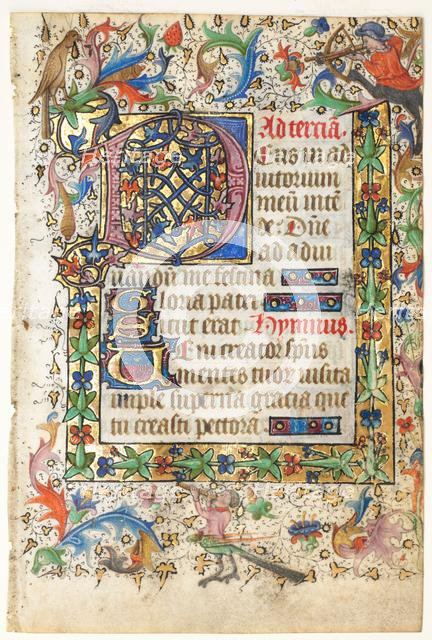 Ad terciã.
Deus in ad
iutorium
meũ intẽ
de. Dñe
ad adiu
uandũ me festina
Gloria patri
Sicut erat. Hymnus.
Veni creator spũs
mentes tuor uisita
imple superna gracia que
tu creasti pectora.